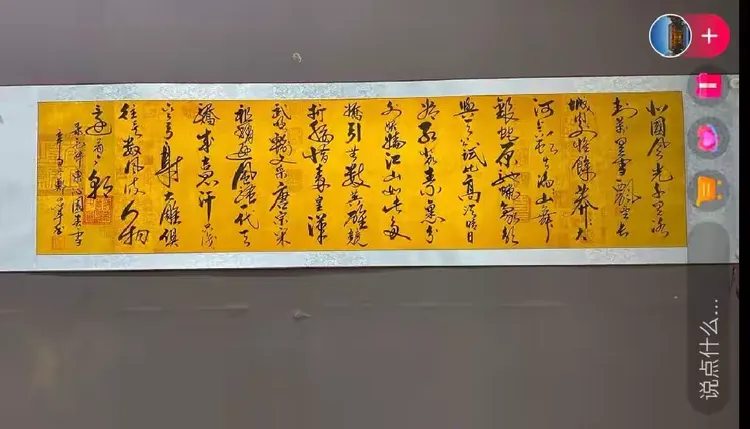 北国风光千里冰
封万里雪飘望长
城内外惟餘莽莽大
河上下顿失滔滔山舞
银蛇原驰蜡象欲
与天公试比高须晴日
看红装素裹分
外妖娆江山如此多
娇引无数英雄竞
折腰惜秦皇汉
武略输文采唐宗宋
祖稍逊风骚一代天
骄成吉思汗只识
弯弓射大雕俱
往矣数风流人物
还看今朝
沁园春雪
说点什么...